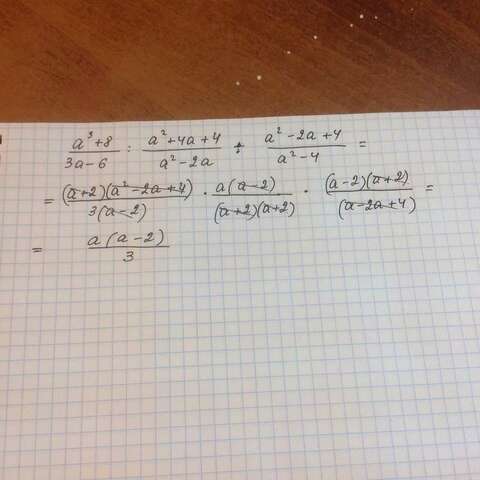 a³+8/3a-6 : a²+4a+4/a²-2a ÷ a²-2a+4/a²-4 =
= (a+2)(a²-2a+4)/3(a-2) · a(a-2)/(a+2)(a+2) · (a-2)(a+2)/(a-2a+4) =
= a(a-2)/3